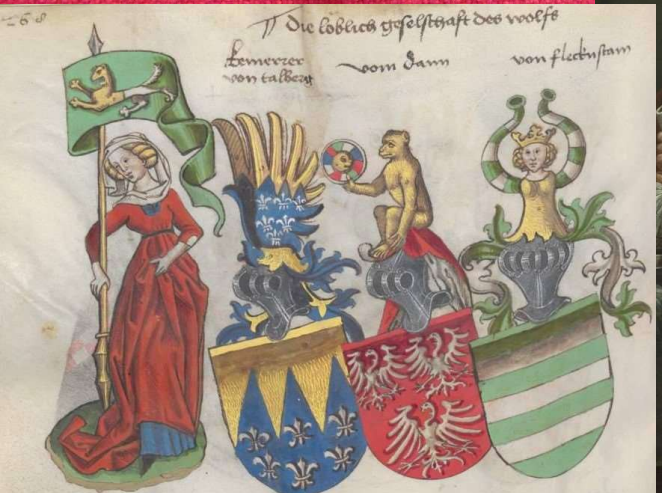 268
Die loblich geselschaft des wolfs
kemerrer
von talberg
vom dann
von flecknstain